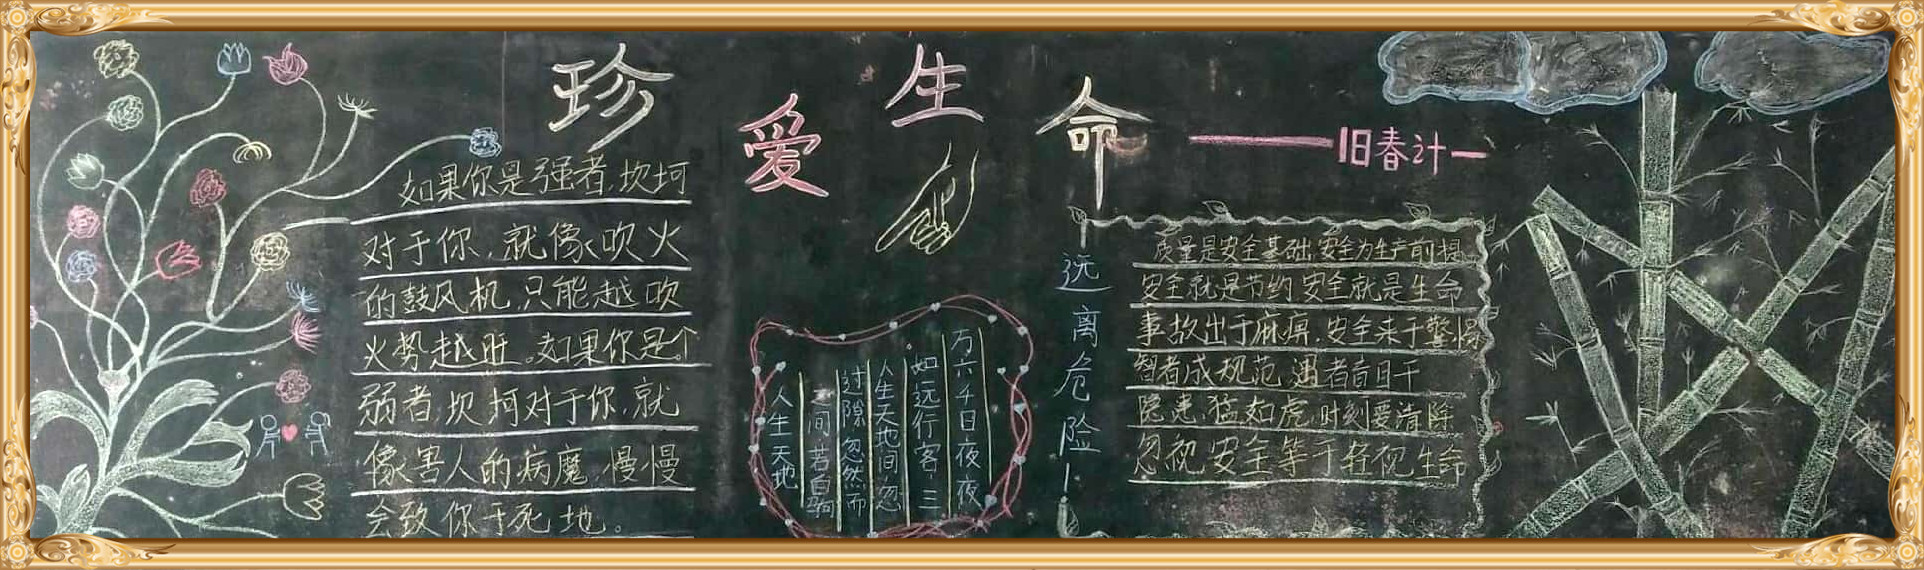 珍爱生命
——旧春计—
如果你是强者,坎坷
对于你,就像吹火
的鼓风机,只能越吹
火势越旺。如果你是个
弱者,坎坷对于你,就
像害人的病魔,慢慢
会致你于死地。
万六千日夜夜
如远行客,三
人生天地间忽
过隙忽然而
间若白驹
人生天地
远离危险
质量是安全基础,安全为生产前提
安全就是节约,安全就是生命
事故出于麻痹,安全来于警惕
智者成规范,遇者盲目干
隐患猛如虎,时刻要清除
忽视安全等于轻视生命